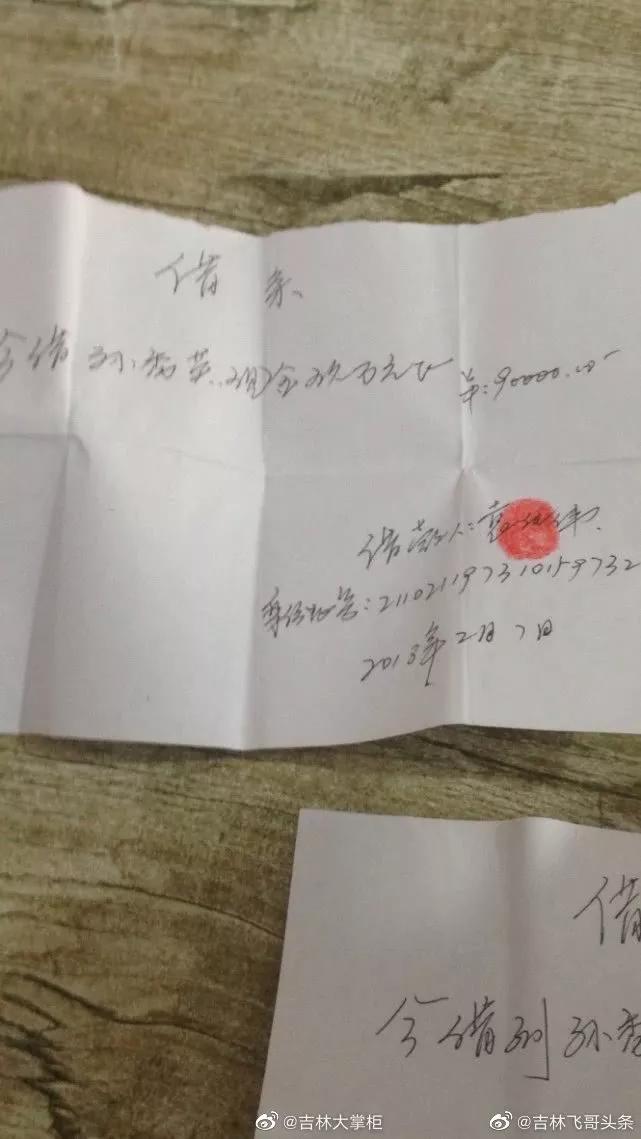 借条
今借孙秀英现金玖万元正 ¥:90000.00
借款人:
身份证号:211021197310159732
2018年2月7日
借
今借到孙秀
@吉林大掌柜 @吉林飞哥头条